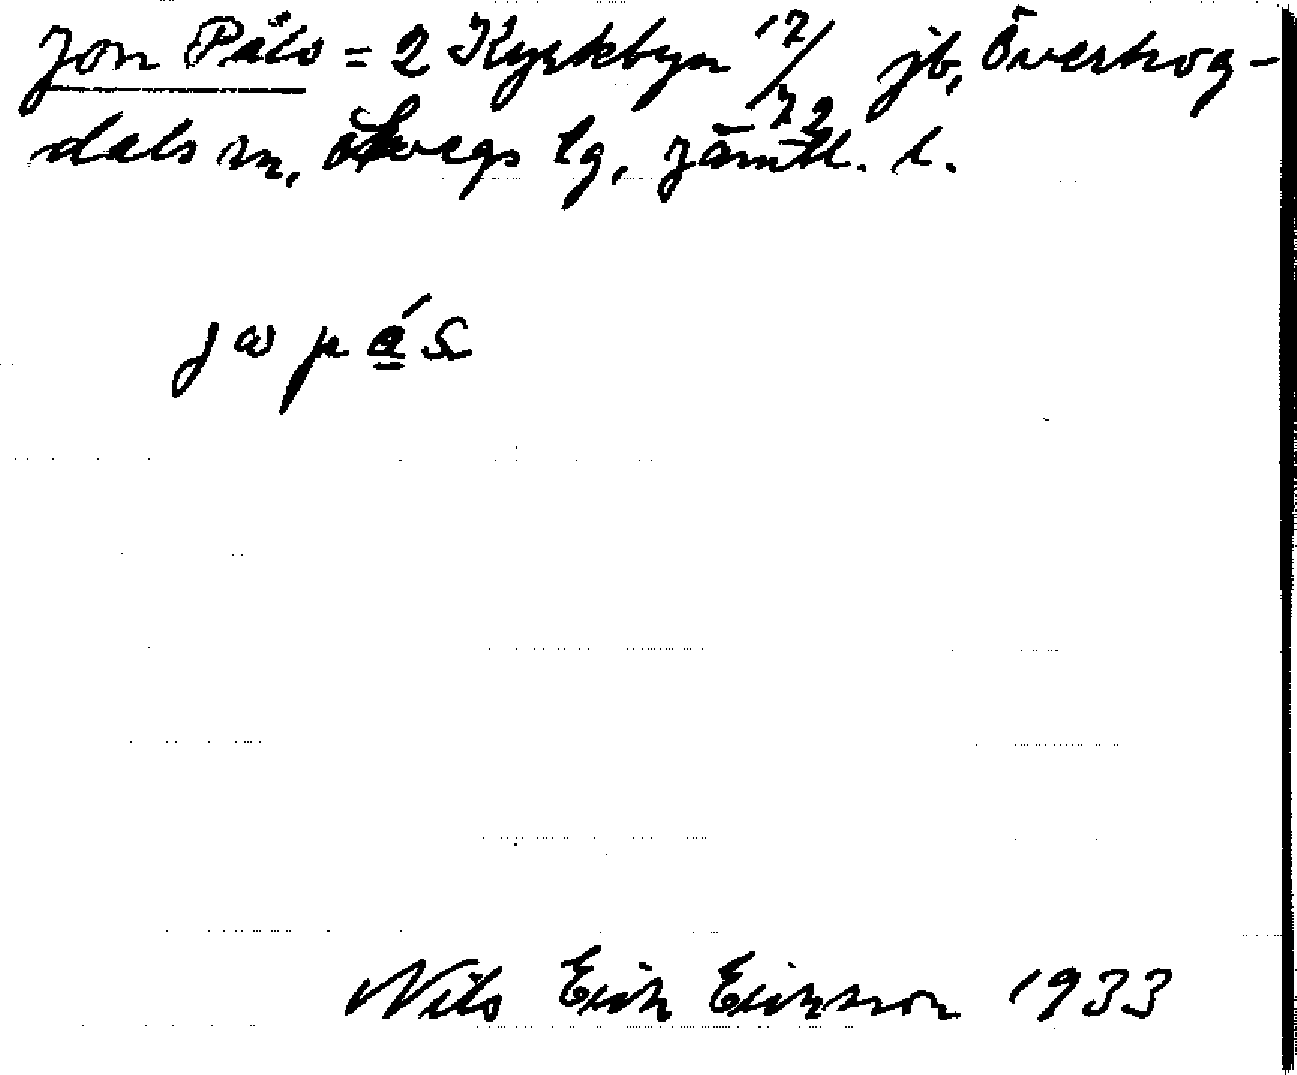 Jon Påls = 2 Kyrkbyn 12/72 jb, Överhog-
dals sn, Hoegs lg, Jämtl. l.
jω pa̲´s
Nils Erik Eriksson 1933